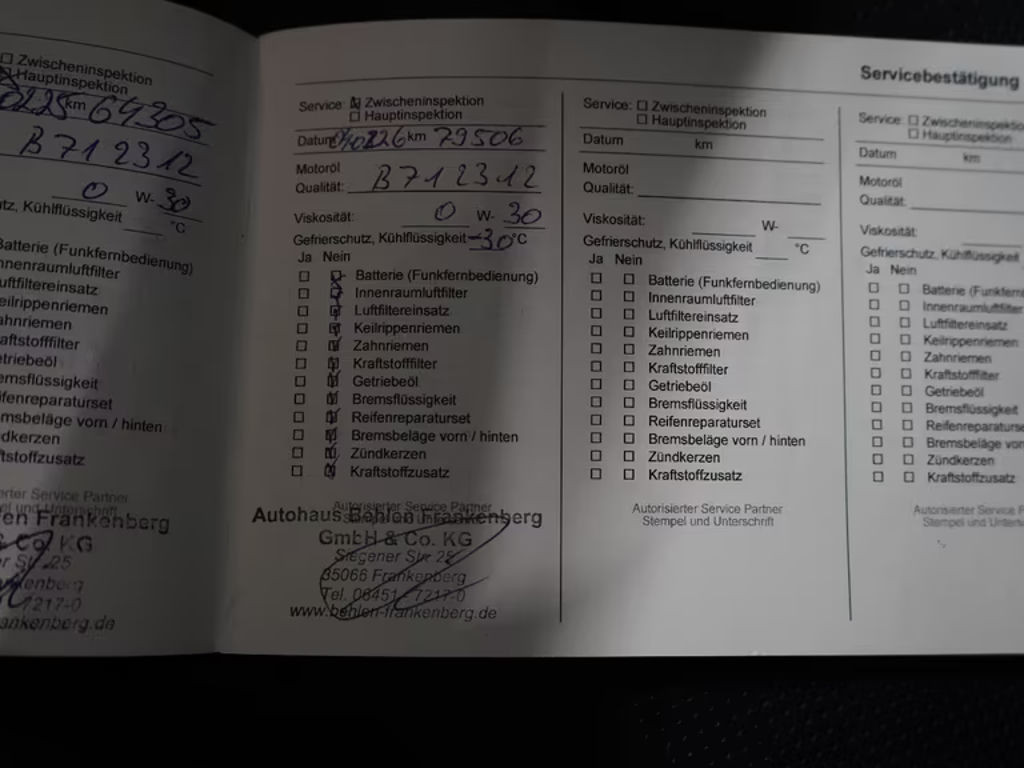 Servicebestätigung
☐ Zwischeninspektion
Hauptinspektion
km 64305
B 71 2312
0 W- 30
tz, Kühlflüssigkeit °C
Batterie (Funkfernbedienung)
nnenraumluftfilter
uftfiltereinsatz
eilrippenriemen
ahnriemen
aftstofffilter
triebeöl
emsflüssigkeit
ifenreparaturset
msbeläge vorn / hinten
dkerzen
tstoffzusatz
erter Service Partner
el und Unterschrift
len Frankenberg
& Co. KG
r Str. 25
kenberg
7217-0
ankenberg.de
Service: ☒ Zwischeninspektion
☐ Hauptinspektion
Datum km 79506
Motoröl
Qualität: B 71 2312
Viskosität: 0 W- 30
Gefrierschutz, Kühlflüssigkeit -30 °C
Ja Nein
☐ ☑ Batterie (Funkfernbedienung)
☐ ☑ Innenraumluftfilter
☐ ☑ Luftfiltereinsatz
☐ ☑ Keilrippenriemen
☐ ☑ Zahnriemen
☐ ☑ Kraftstofffilter
☐ ☑ Getriebeöl
☐ ☑ Bremsflüssigkeit
☐ ☑ Reifenreparaturset
☐ ☑ Bremsbeläge vorn / hinten
☐ ☑ Zündkerzen
☐ ☑ Kraftstoffzusatz
Autorisierter Service Partner
Stempel und Unterschrift
Autohaus Behlen Frankenberg
GmbH & Co. KG
Siegener Str. 25
35066 Frankenberg
Tel. 06451 - 7217-0
www.behlen-frankenberg.de
Service: ☐ Zwischeninspektion
☐ Hauptinspektion
Datum km
Motoröl
Qualität:
Viskosität: W-
Gefrierschutz, Kühlflüssigkeit °C
Ja Nein
☐ ☐ Batterie (Funkfernbedienung)
☐ ☐ Innenraumluftfilter
☐ ☐ Luftfiltereinsatz
☐ ☐ Keilrippenriemen
☐ ☐ Zahnriemen
☐ ☐ Kraftstofffilter
☐ ☐ Getriebeöl
☐ ☐ Bremsflüssigkeit
☐ ☐ Reifenreparaturset
☐ ☐ Bremsbeläge vorn / hinten
☐ ☐ Zündkerzen
☐ ☐ Kraftstoffzusatz
Autorisierter Service Partner
Stempel und Unterschrift
Service: ☐ Zwischeninspektio
☐ Hauptinspektion
Datum km
Motoröl
Qualität:
Viskosität:
Gefrierschutz, Kühlflüssigkeit
Ja Nein
☐ ☐ Batterie (Funkfern
☐ ☐ Innenraumluftfilter
☐ ☐ Luftfiltereinsatz
☐ ☐ Keilrippenriemen
☐ ☐ Zahnriemen
☐ ☐ Kraftstofffilter
☐ ☐ Getriebeöl
☐ ☐ Bremsflüssigkeit
☐ ☐ Reifenreparaturse
☐ ☐ Bremsbeläge vorn
☐ ☐ Zündkerzen
☐ ☐ Kraftstoffzusatz
Autorisierter Service P
Stempel und Unterso